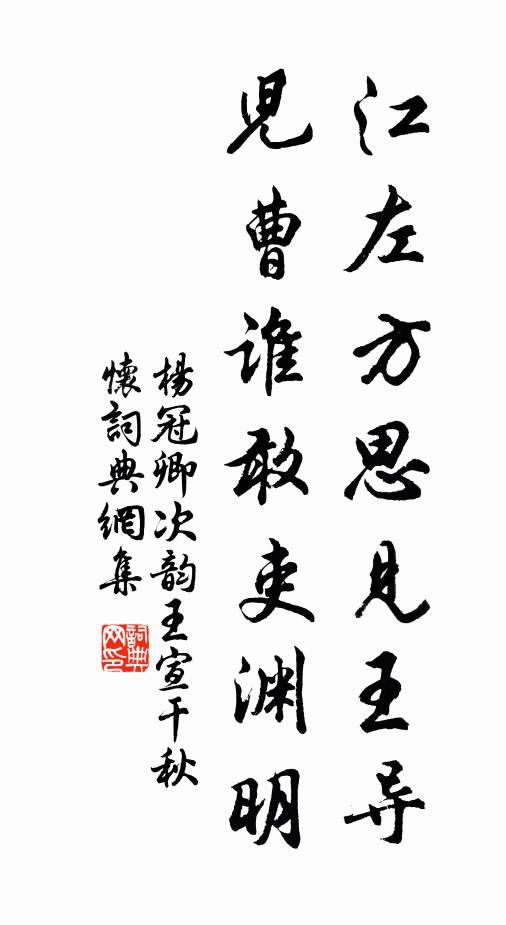 江左方思見王导
児曹谁敢吏渊明
楊冠卿次韵王宣干秋
懷詞典網集
詞典网印